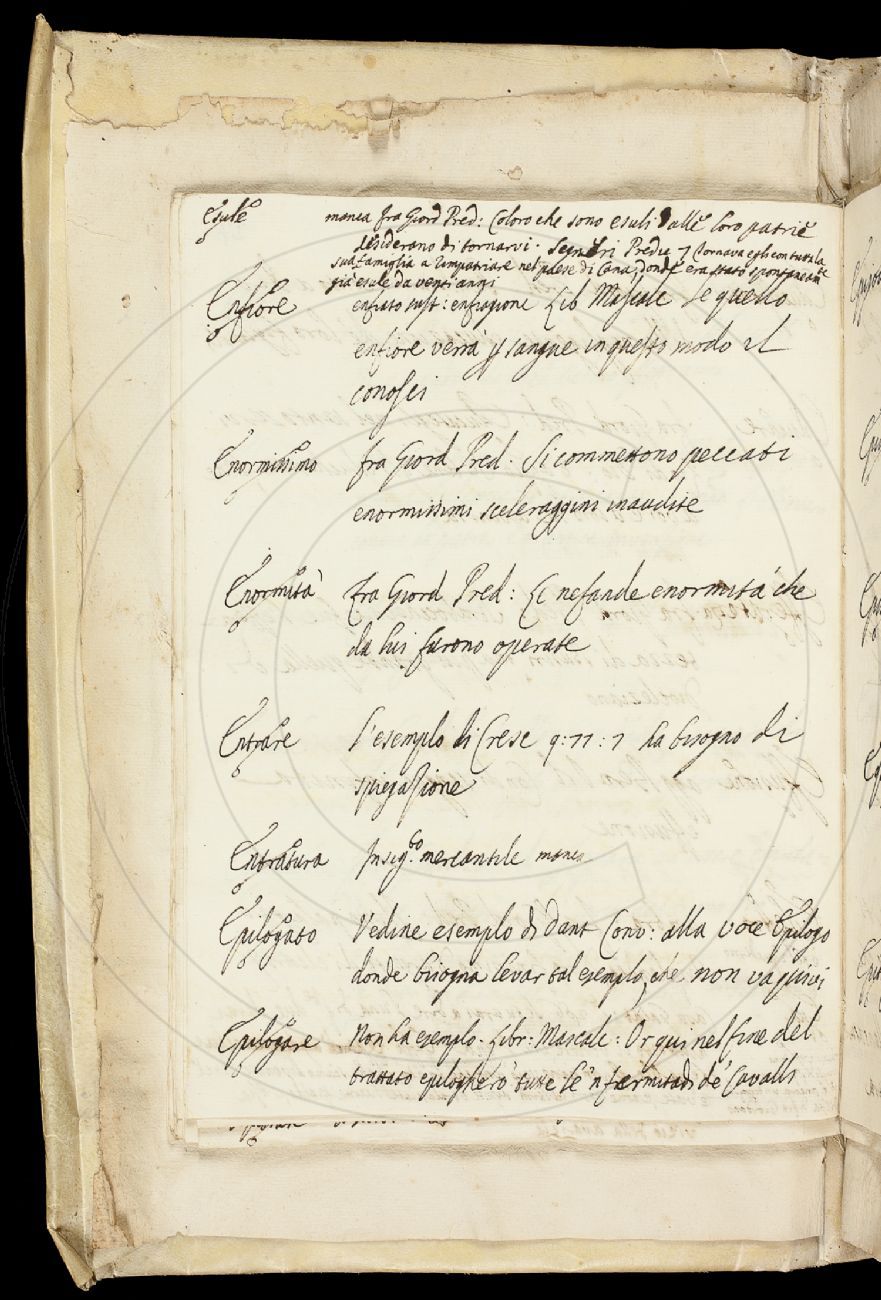 Esule manca fra Giord Pred: Coloro che sono esuli dalle loro patrie
desiderano di tornarvi. Segneri Predic 7 Tornava egli con tutta la
sua famiglia a rimpatriare nel paese di Cana, donde era stato spontaneamte
già esule da venti anni
Enfiore enfiato sust: enfiagione Lib Mascalc Se quello
enfiore verrà p sangue in questo modo il
conosci
Enormissimo fra Giord Pred. Si commettono peccati
enormissimi sceleraggini inaudite
Enormità fra Giord Pred: Le nefande enormità che
da lui furono operate
Entrare l'esempio di Cresc 9:77:7 ha bisogno di
spiegazione
Entratura In sig.to mercantile manca
Epilogato Vedine esempio di Dant Conv: alla voce Epilogo
donde bisogna levar tal esempio, che non va quivi
Epilogare Non ha esempio. Libr: Mascalc: Or qui nel fine del
trattato epilogherò tutte le 'nfermitadi de' Cavalli